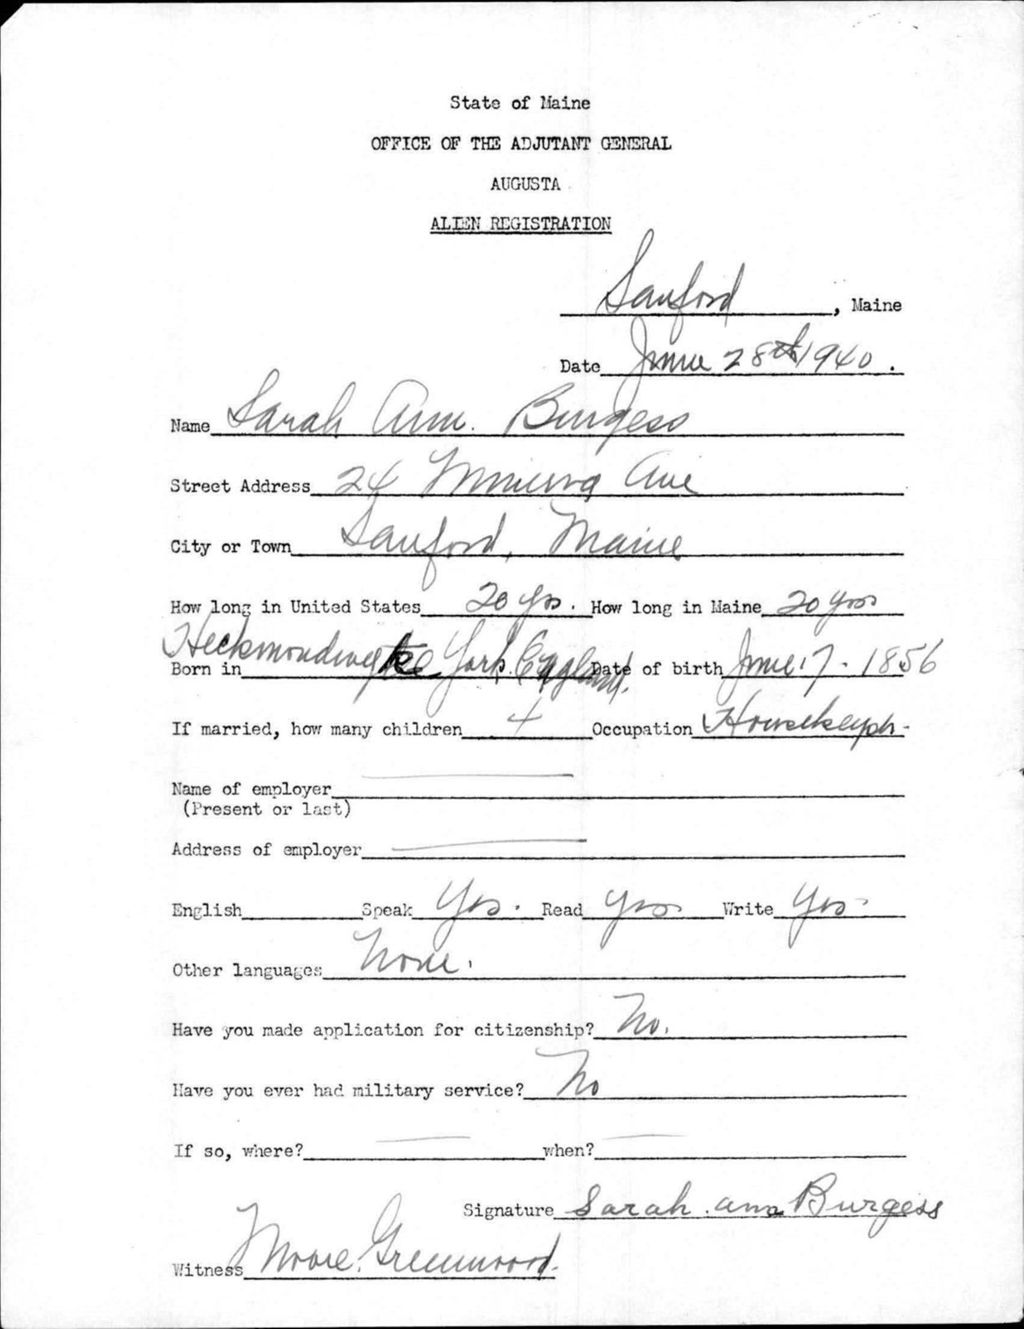 State of Maine
OFFICE OF THE ADJUTANT GENERAL
AUGUSTA
ALIEN REGISTRATION
Sanford, Maine
Date June 28th 1940.
Name Sarah Ann. Burgess
Street Address 24 Ave
City or Town Sanford, Maine
How long in United States 20 yrs. How long in Maine 20 yrs
Born in Heckmondwyke York. England. Date of birth June 7 - 1856
If married, how many children 4 Occupation
Name of employer
(Present or last)
Address of employer
English Speak Yes. Read Yes Write Yes
Other languages None.
Have you made application for citizenship? No.
Have you ever had military service? No
If so, where? when?
Signature Sarah. ann Burgess
Witness Greenwood.